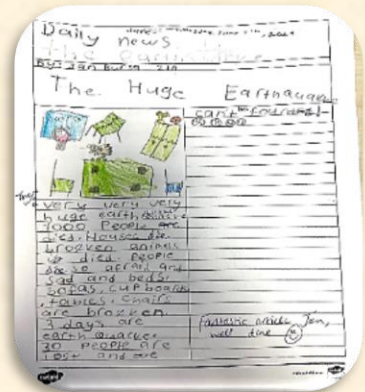 Daily news
The Earthquake
By: Jan
The Huge Earthquake
can't found!
very very very
huge earth
1000 People
died. Houses are
brocken animals
died. People
so afraid and
sad and beds,
sofas, cupboard
, tables, chairs
are brocken.
3 days are
earth quarkes
30 people are
lost and are
Fantastic article Jan,
well done